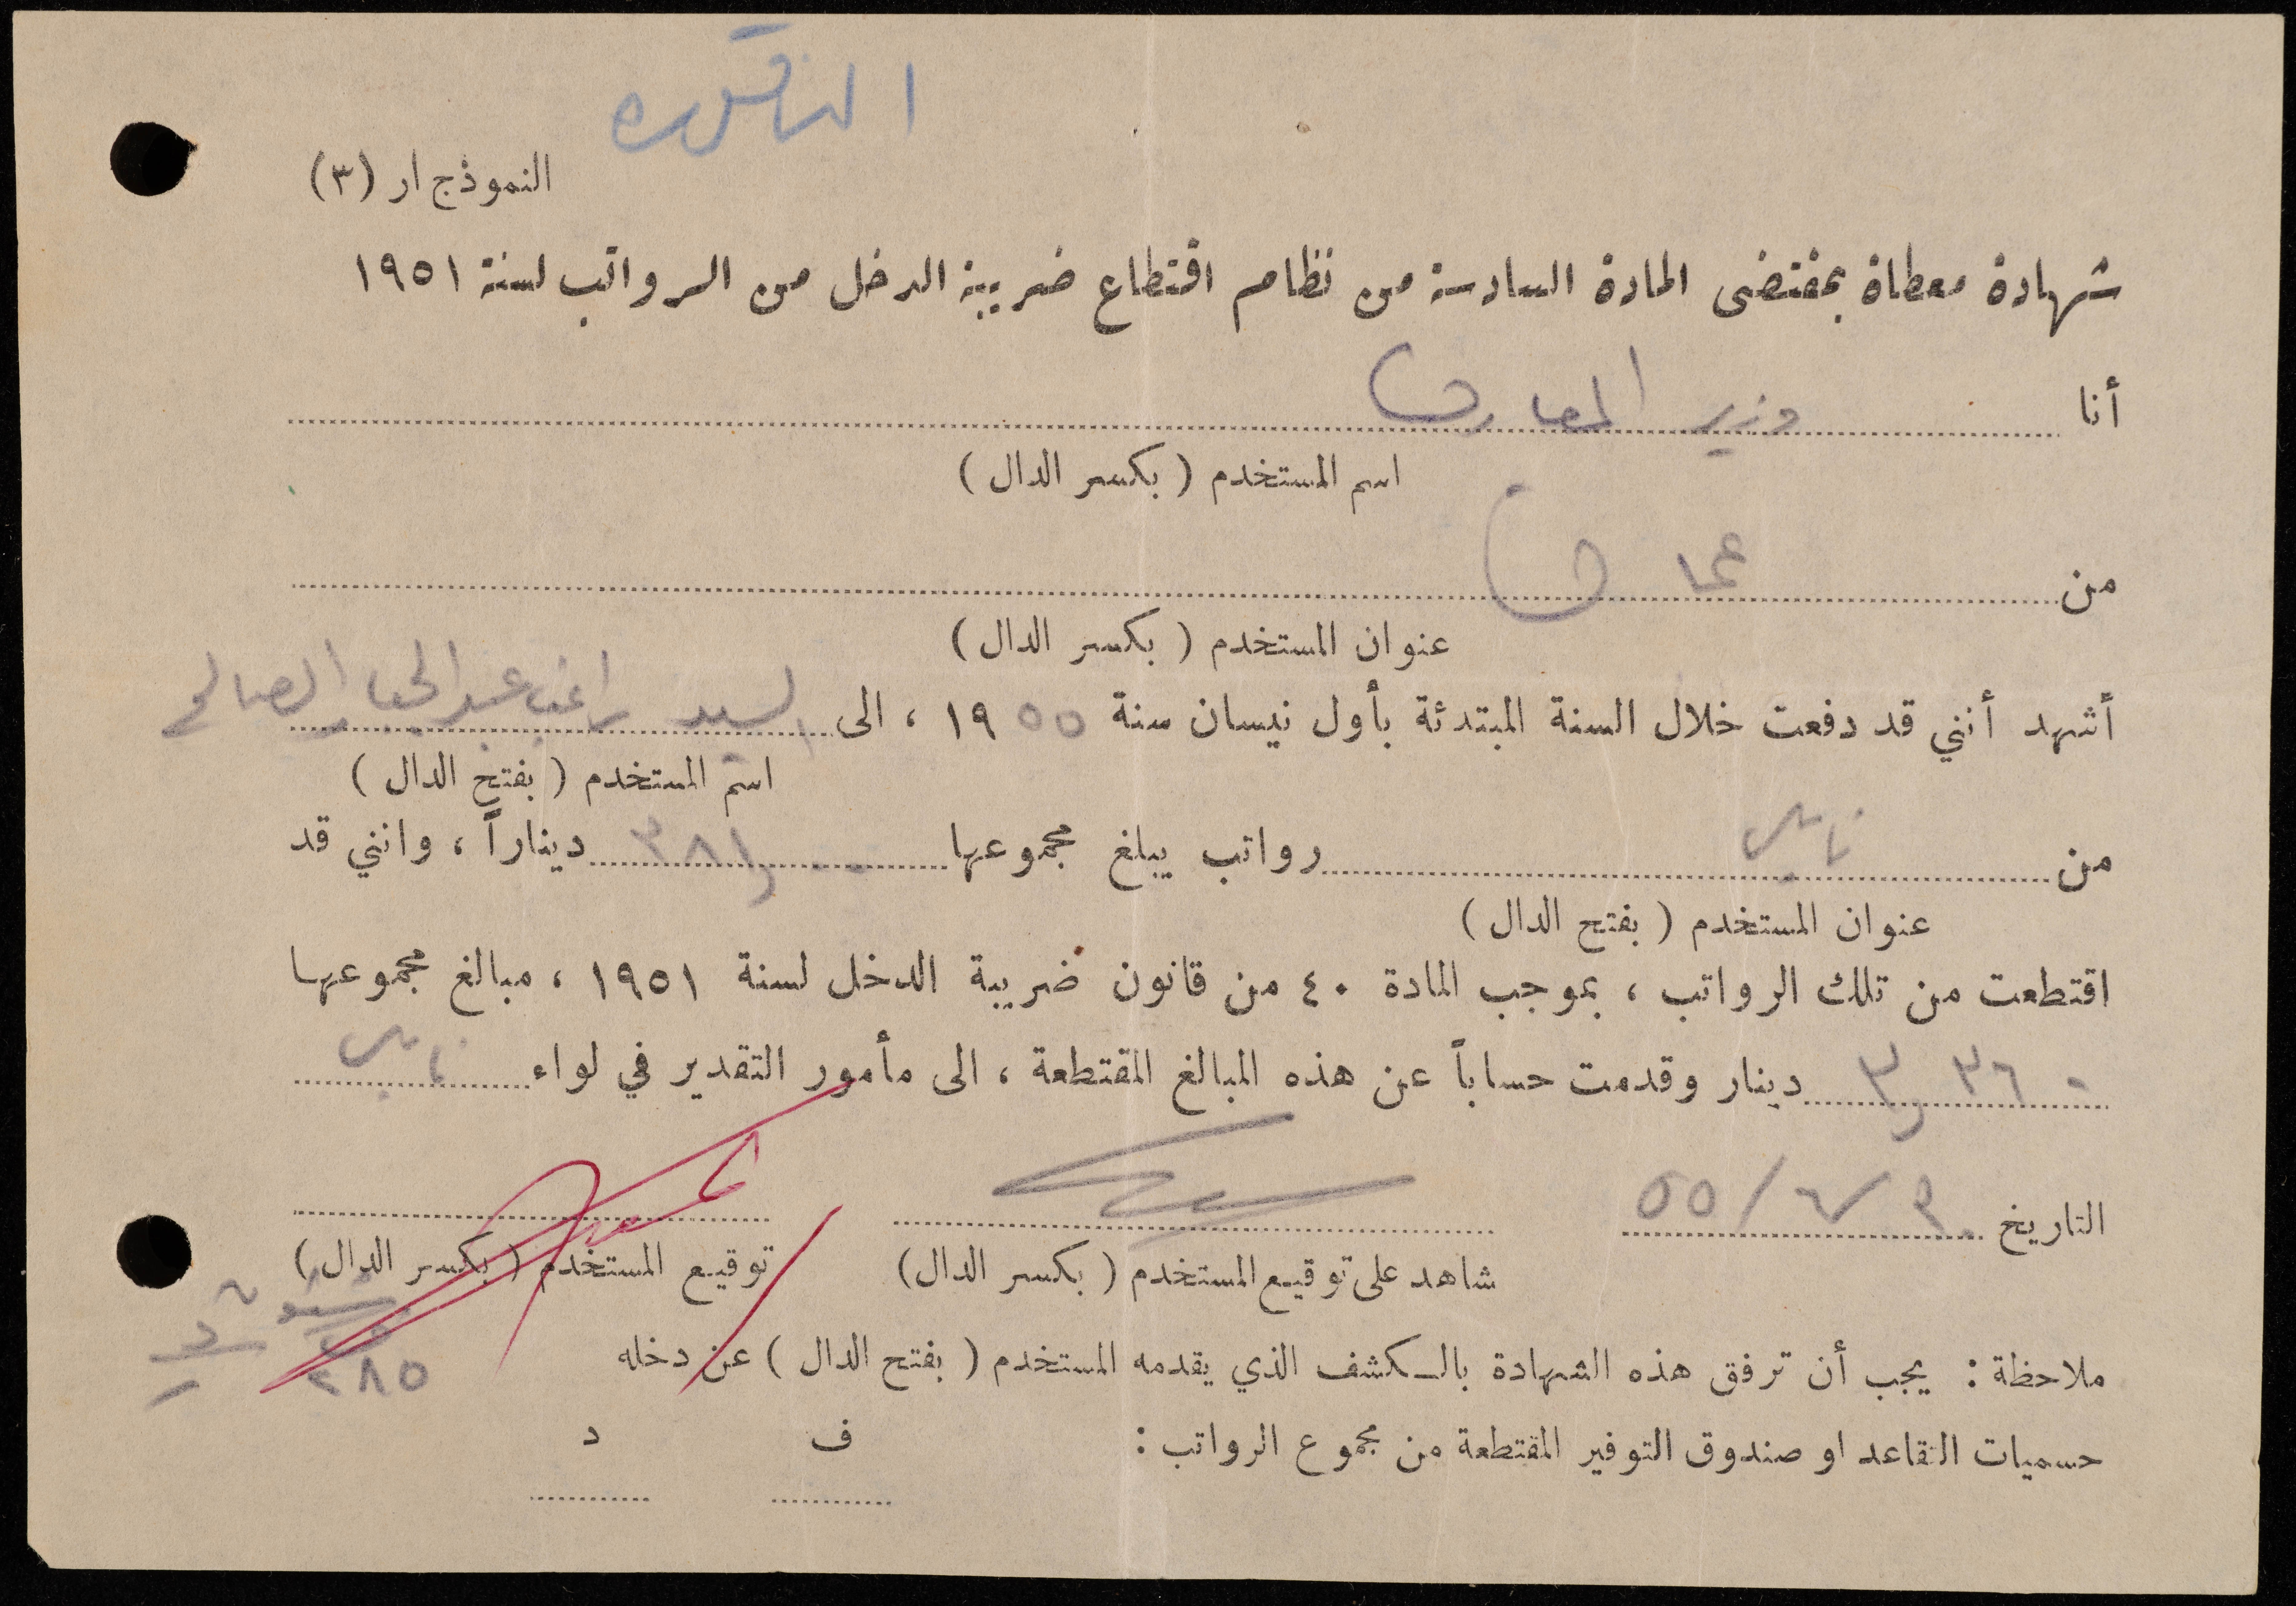 الناقوره
النموذج ار (٣)
شهادة معطاة بمقتضى المادة السادسة من نظام اقتطاع ضريبة الدخل من الرواتب لسنة ١٩٥١
أنا وزير المعارف
اسم المستخدم ( بكسر الدال )
من عمان
عنوان المستخدم ( بكسر الدال )
أشهد أنني قد دفعت خلال السنة المبتدئة بأول نيسان سنة ١٩٥٥ ، الى السيد راغب عبد الجبار الصالح
اسم المستخدم ( بفتح الدال )
من نابلس رواتب يبلغ مجموعها ٣٨١ ديناراً ، وانني قد
عنوان المستخدم ( بفتح الدال )
اقتطعت من تلك الرواتب ، بموجب المادة ٤٠ من قانون ضريبة الدخل لسنة ١٩٥١ ، مبالغ مجموعها
٣٦٠ر٣ دينار وقدمت حساباً عن هذه المبالغ المقتطعة ، الى مأمور التقدير في لواء نابلس
التاريخ ٣٠/٦/٥٥
شاهد على توقيع المستخدم ( بكسر الدال ) توقيع المستخدم ( بكسر الدال )
ملاحظة : يجب أن ترفق هذه الشهادة بالكشف الذي يقدمه المستخدم ( بفتح الدال ) عن دخله
٢٨٥
حسميات التقاعد او صندوق التوفير المقتطعة من مجموع الرواتب : ف د